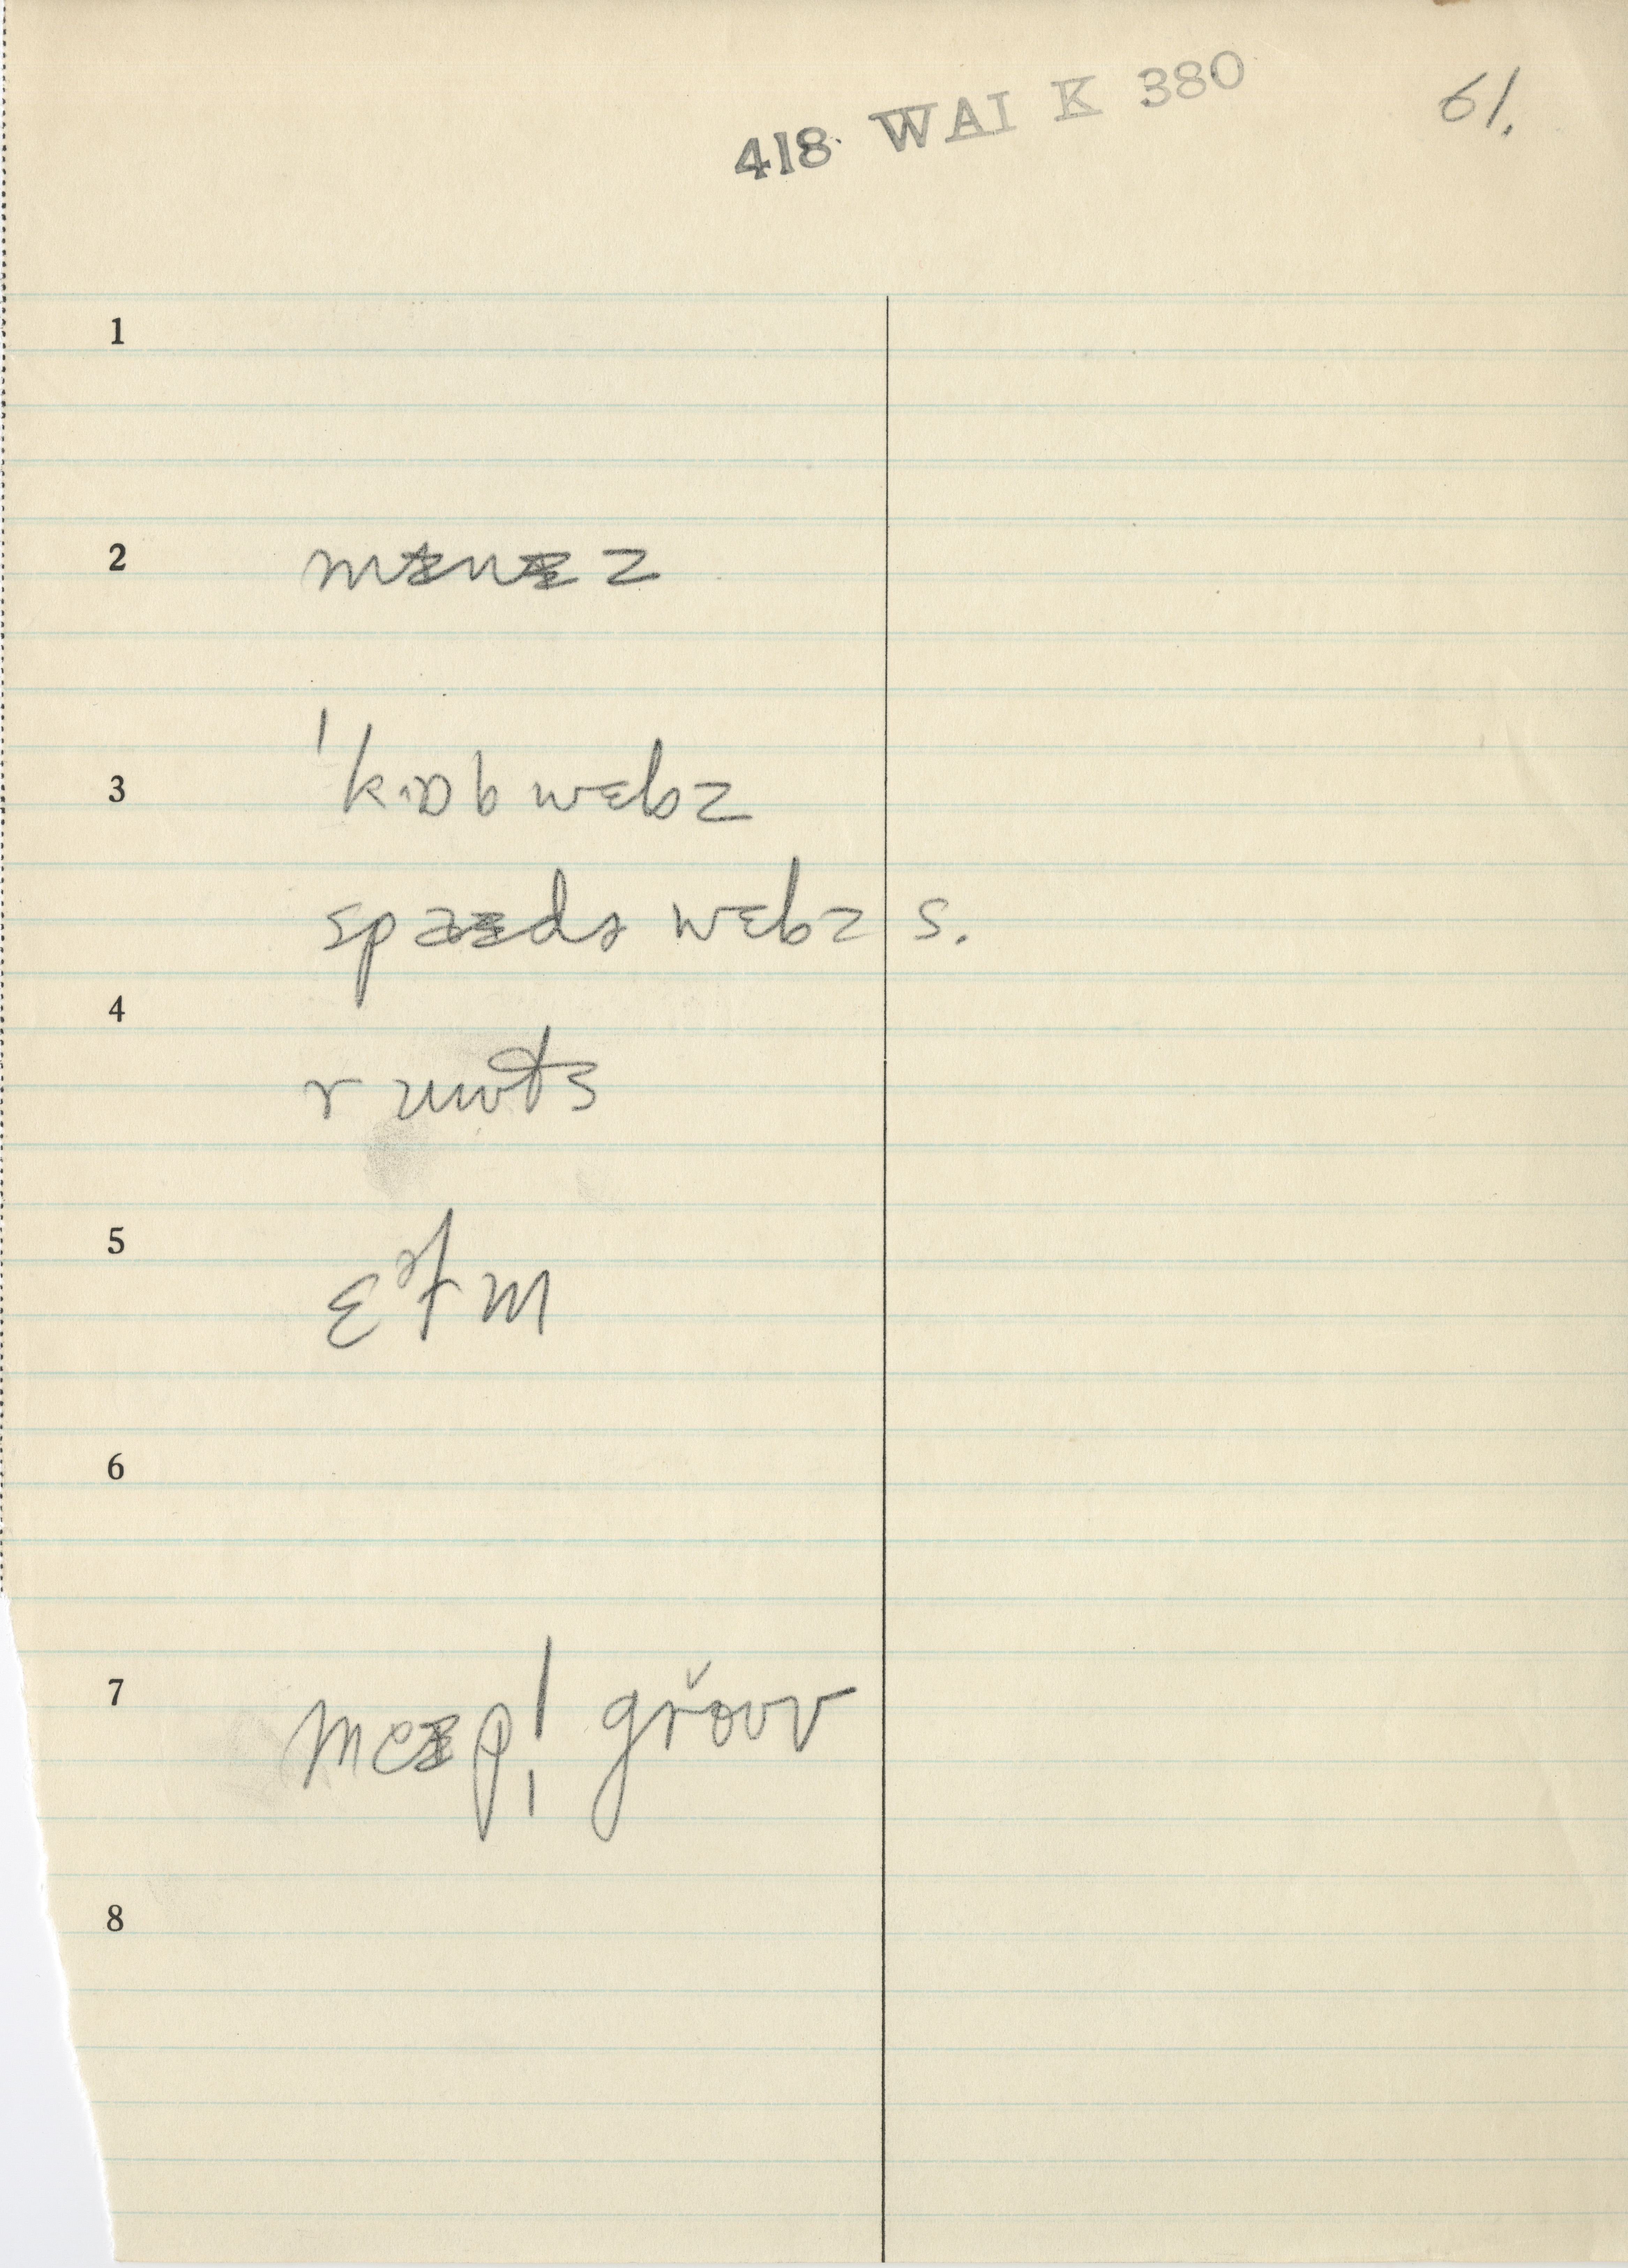 418 WAI K 380
61.
1
2 mɪnɪz
3 ˈkɒbwɛbz
spaɪdɚ wɛbz s.
4 r uuts
5 ɛᵊfm
6
7 meɪpl̩ grǒuv
8